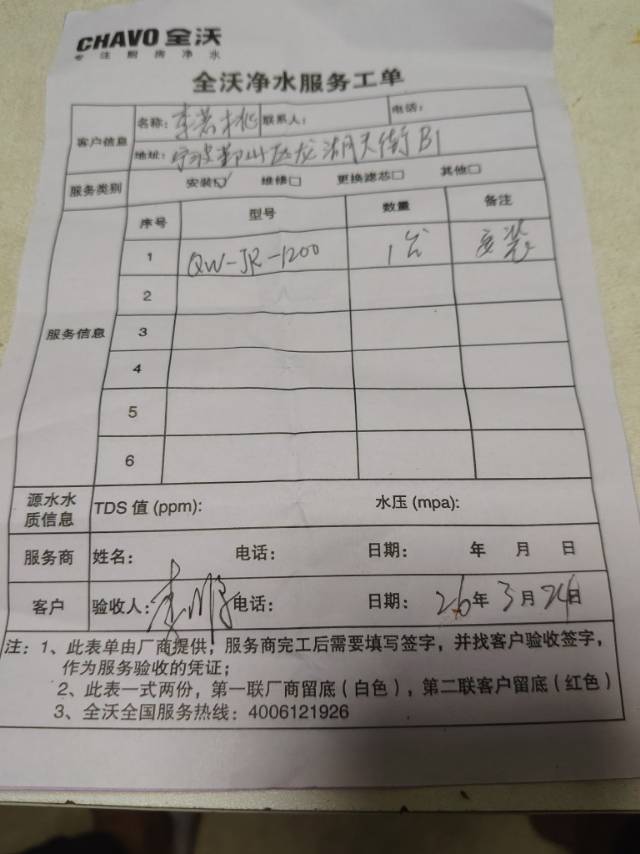 CHAVO 全沃
专注厨房净水
全沃净水服务工单
客户信息 名称: 李 桃 联系人: 电话:
地址: 宁波鄞州区龙湖天街B1
服务类别 安装☑ 维修□ 更换滤芯□ 其他□
服务信息 序号 型号 数量 备注
1 QW-JR-1200 1台 安装
2
3
4
5
6
源水水质信息 TDS 值 (ppm): 水压 (mpa):
服务商 姓名: 电话: 日期: 年 月 日
客户 验收人: 李 电话: 日期: 26年 3月 日
注: 1、此表单由厂商提供; 服务商完工后需要填写签字, 并找客户验收签字,
作为服务验收的凭证;
2、此表一式两份, 第一联厂商留底 (白色) , 第二联客户留底 (红色)
3、全沃全国服务热线: 4006121926